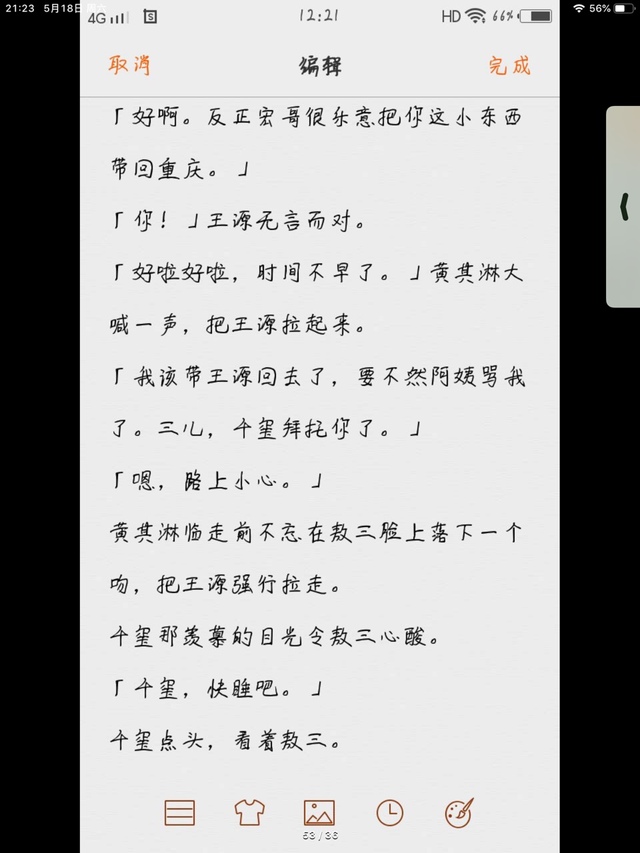 21:23 5月18日
56%
4G
12:21
HD
66%
取消
编辑
完成
「好啊。反正宏哥很乐意把你这小东西
带回重庆。」
「你！」王源无言而对。
「好啦好啦，时间不早了。」黄其淋大
喊一声，把王源拉起来。
「我该带王源回去了，要不然阿姨骂我
了。三儿，千玺拜托你了。」
「嗯，路上小心。」
黄其淋临走前不忘在敖三脸上落下一个
吻，把王源强行拉走。
千玺那羡慕的目光令敖三心酸。
「千玺，快睡吧。」
千玺点头，看着敖三。
53/36